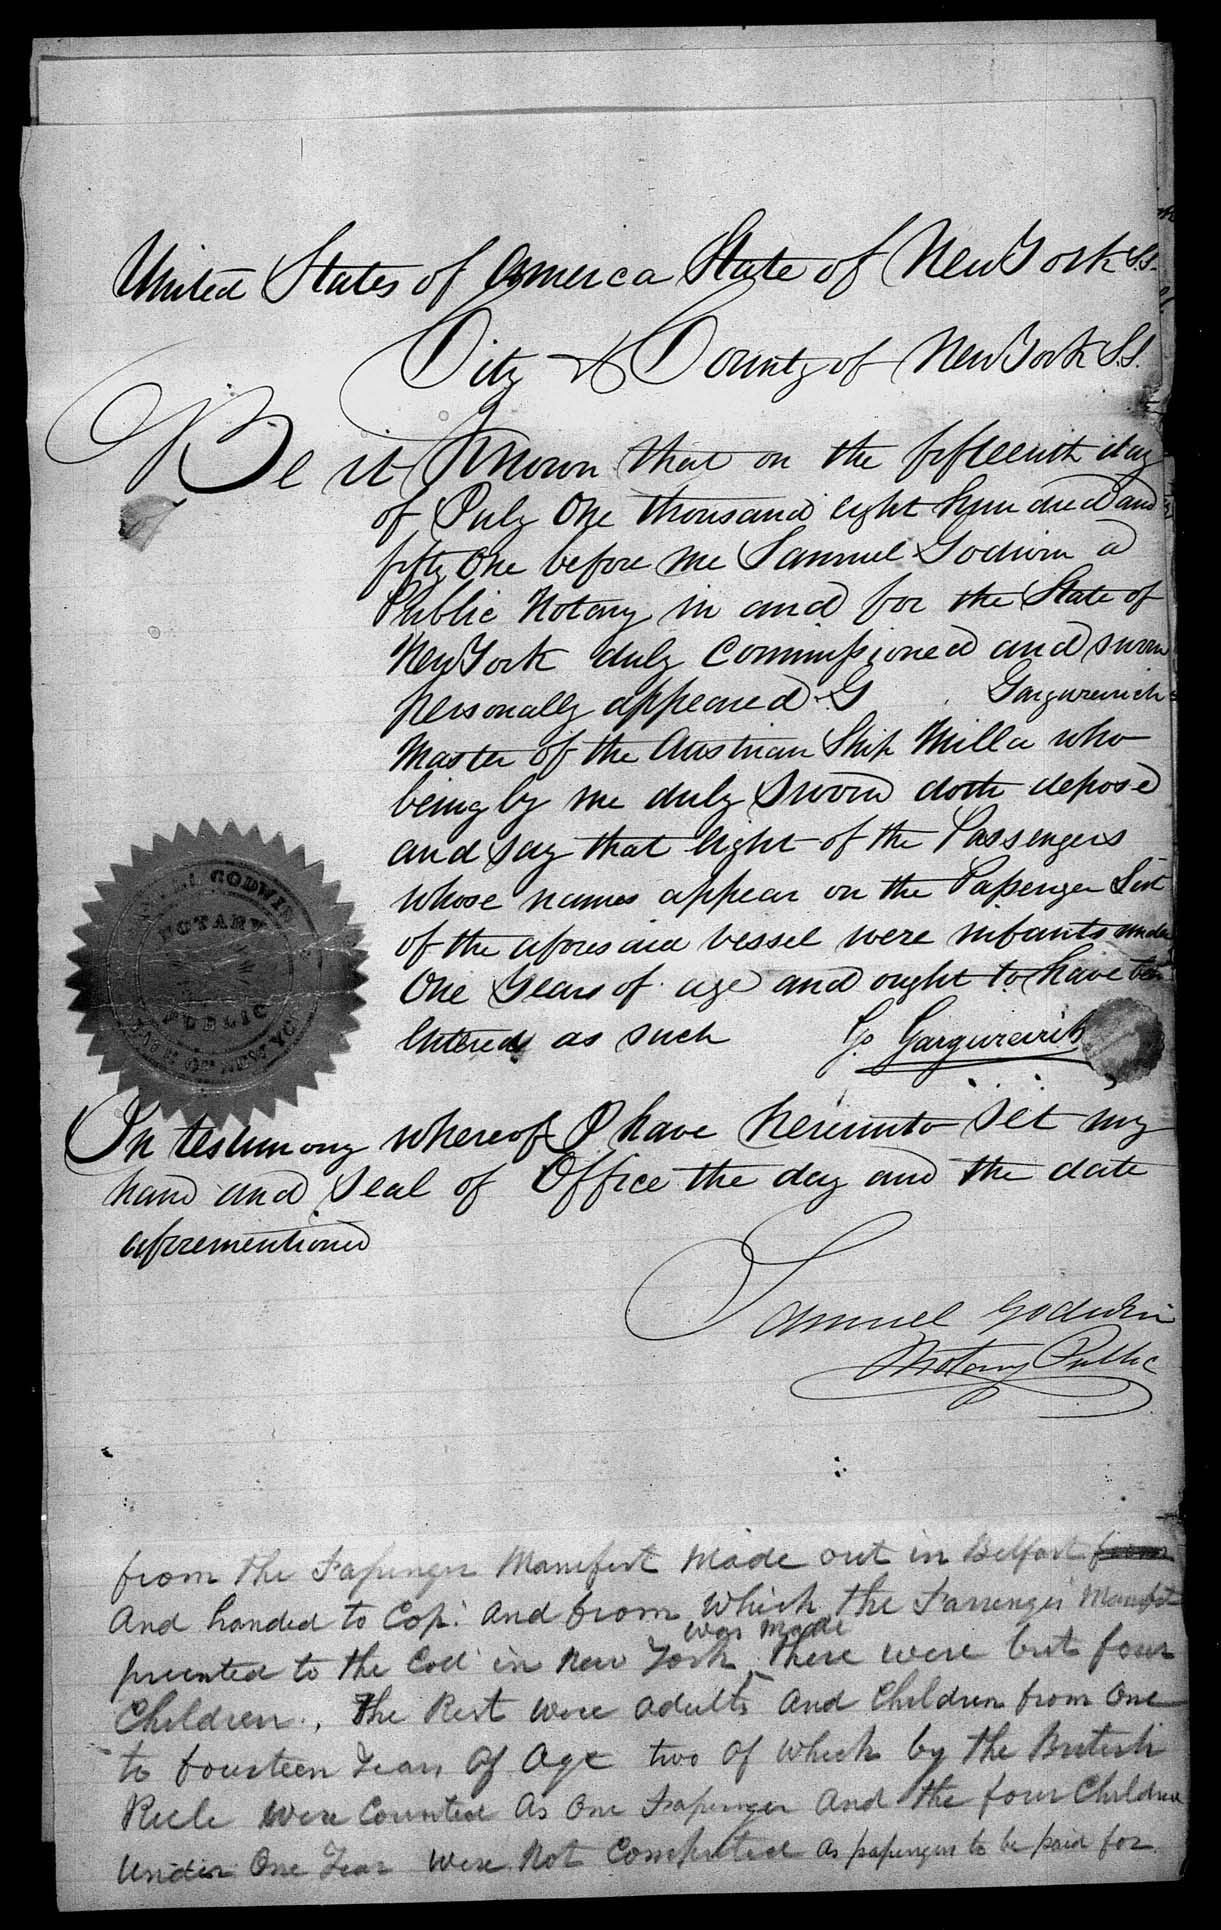 United States of America State of New York S.S.
City & County of New York S.S.
Be it Known that on the fifteenth day
of July One thousand eight hundred and
fifty One before me Samuel Godwin a
Public Notary in and for the State of
New York duly Commissioned and sworn
personally appeared G Gargurevich
Master of the Austrian Ship Milla who
being by me duly Sworn doth depose
and say that eight of the Passengers
whose names appear on the Passenger List
of the aforesaid vessel were infants under
One Years of age and ought to have been
Entered as such G. Gargurevich
GODWIN
NOTARY
PUBLIC
In testimony whereof I have hereunto set my
hand and Seal of Office the day and the date
aforementioned
Samuel Godwin
Notary Public
from the Passenger Manifest made out in Belfast from
And handed to Cap. And from which the Passenger Manifest
was made
presented to the Col in New York there were but four
Children., The Rest were adults And Children from One
to fourteen Years of Age two of which by the British
Rule were Counted As One Passenger And the four Children
Under One Year were Not Computed as passengers to be paid for